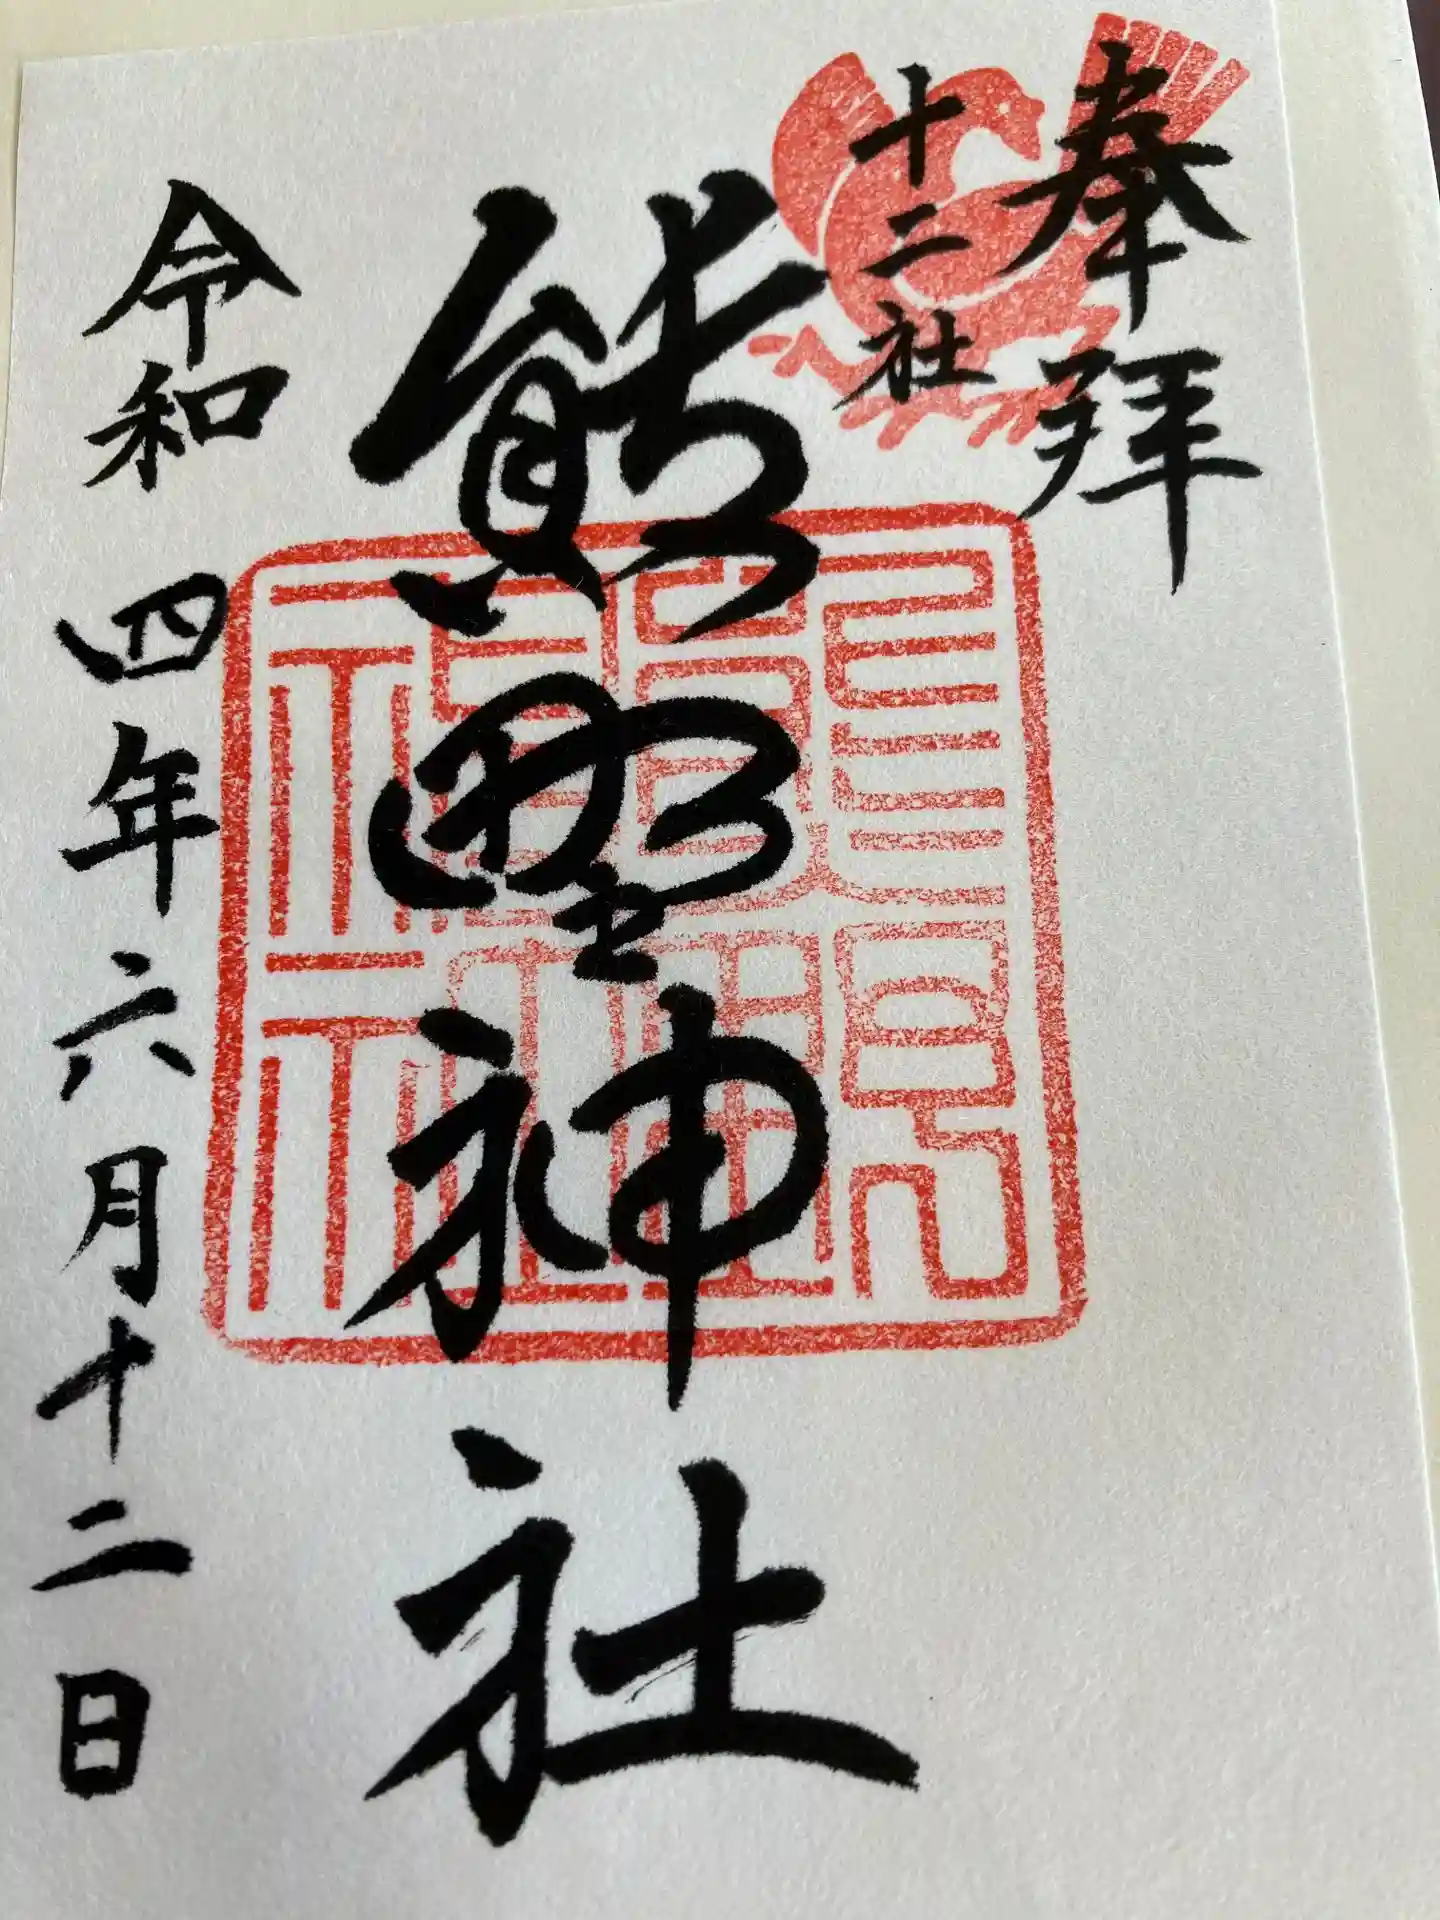 奉拝
十二社
熊野神社
令和四年六月十二日